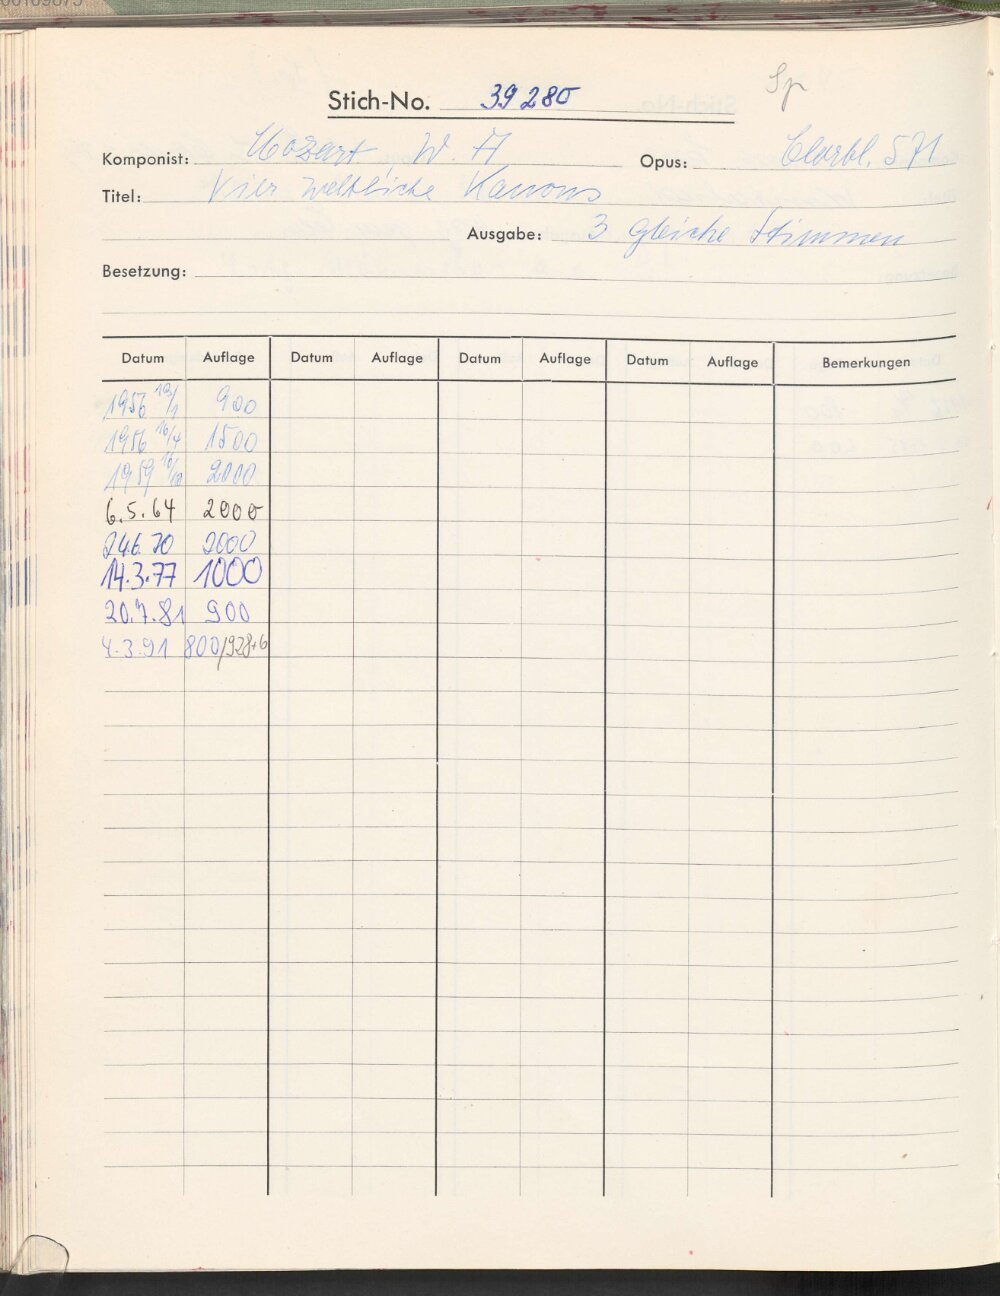 Sp
Stich-No. 39280
Komponist: Mozart W. A Opus: Chorbl. 571
Titel: Vier weltliche Kanons
Ausgabe: 3 gleiche Stimmen
Besetzung:
Datum Auflage Datum Auflage Datum Auflage Datum Auflage Bemerkungen
1956 900
1956 16/4 1500
1959 2000
6.5.64 2000
24.6.70 2000
14.3.77 1000
20.7.81 900
4.3.91 800/928+6